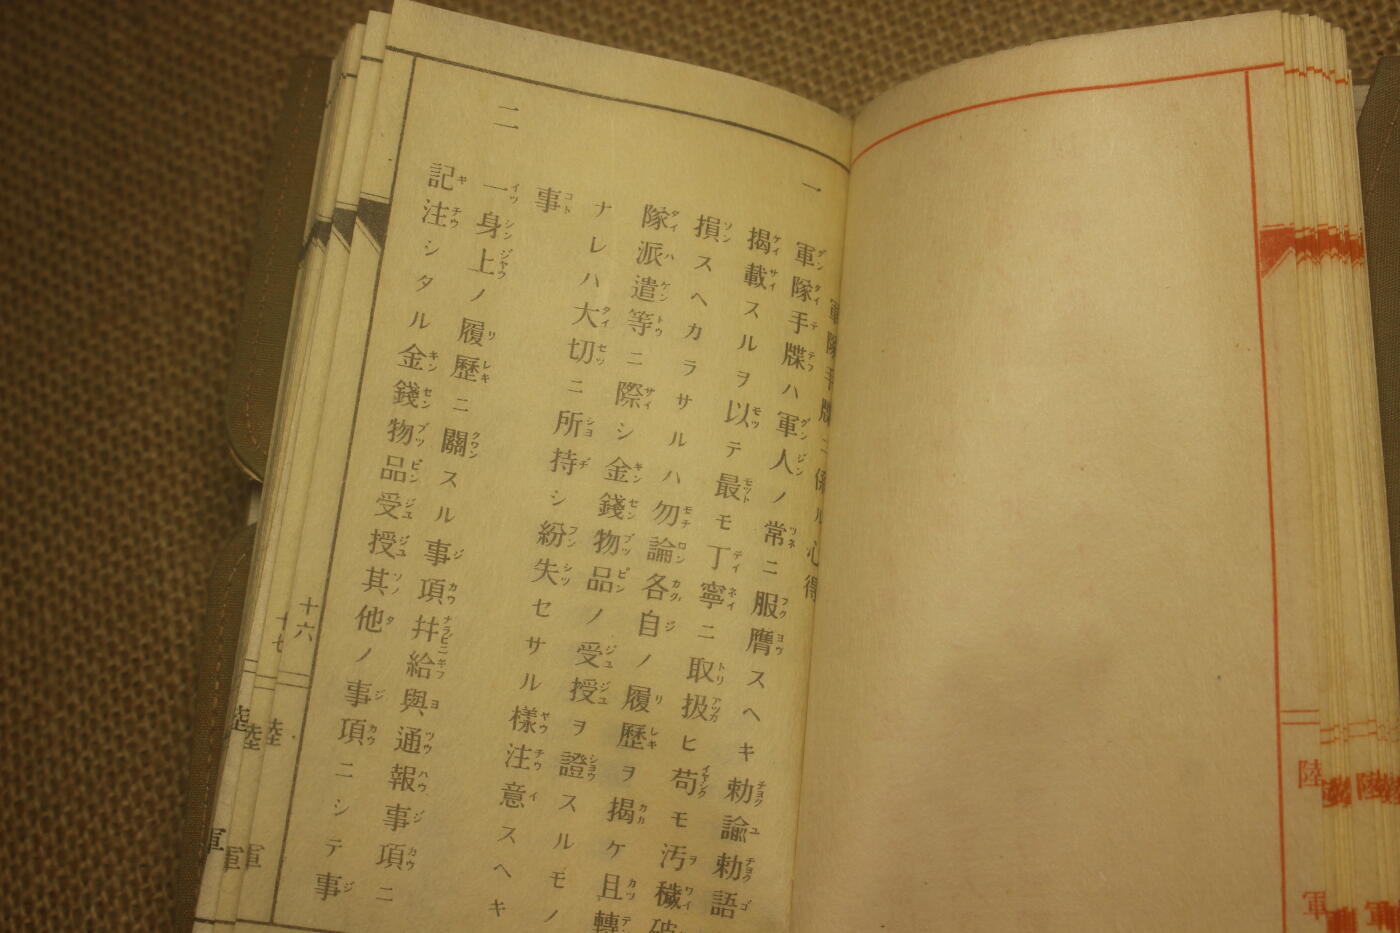 軍隊手牒ニ係ル心得
一 軍隊手牒ハ軍人ノ常ニ服膺スヘキ勅諭勅語
揭載スルヲ以テ最モ丁寧ニ取扱ヒ苟モ汚穢破
損スヘカラサルハ勿論各自ノ履歷ヲ揭ケ且轉
隊派遣等ニ際シ金錢物品ノ受授ヲ證スルモノ
ナレハ大切ニ所持シ紛失セサル樣注意スヘキ
事
二 一身上ノ履歷ニ關スル事項幷給與通報事項ニ
記注シタル金錢物品受授其他ノ事項ニシテ事
十六
十七
陸軍
陸軍
陸軍
陸軍